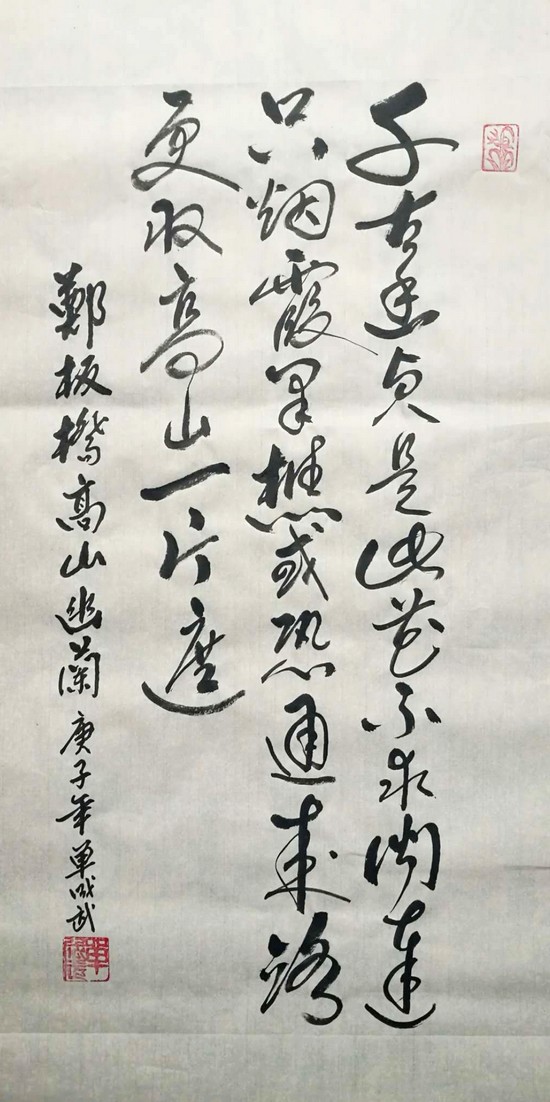 千古幽贞是此花不求闻达
只烟霞采樵或恐通来路
更取高山一片遮
鄭板橋高山幽蘭庚子年单武